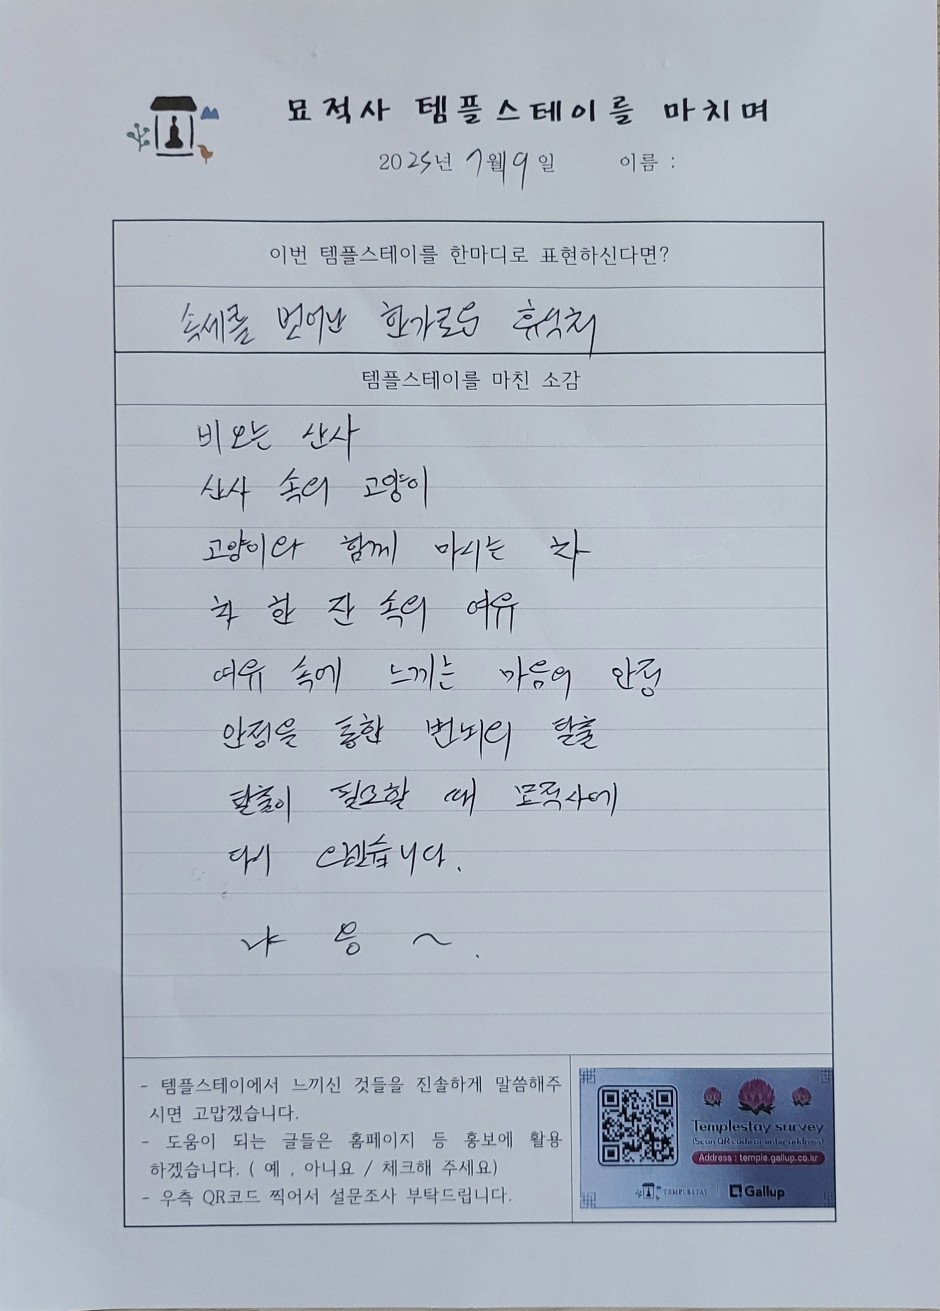 묘적사 템플스테이를 마치며
2025년 7월 9일 이름 :
이번 템플스테이를 한마디로 표현하신다면?
속세를 벗어난 한가로운 휴식처
템플스테이를 마친 소감
비 오는 산사
산사 속의 고양이
고양이와 함께 마시는 차
차 한 잔 속의 여유
여유 속에 느끼는 마음의 안정
안정을 통한 번뇌의 탈출
탈출이 필요할 때 묘적사에
다시 오겠습니다.
냐 옹 ~ .
- 템플스테이에서 느끼신 것들을 진솔하게 말씀해주
시면 고맙겠습니다.
- 도움이 되는 글들은 홈페이지 등 홍보에 활용
하겠습니다. ( 예 , 아니요 / 체크해 주세요)
- 우측 QR코드 찍어서 설문조사 부탁드립니다.
Templestay survey
(Scan QR code or enter address)
Address : temple.gallup.co.kr
TEMPLESTAY Gallup